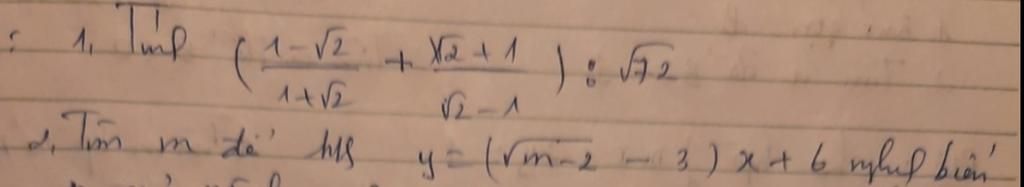 : 1, Tính ( \frac{1-\sqrt{2}}{1+\sqrt{2}} + \frac{\sqrt{2}+1}{\sqrt{2}-1} ) : \sqrt{72}
2, Tìm m để hs y = (\sqrt{m-2} - 3) x + 6 nghịch biến